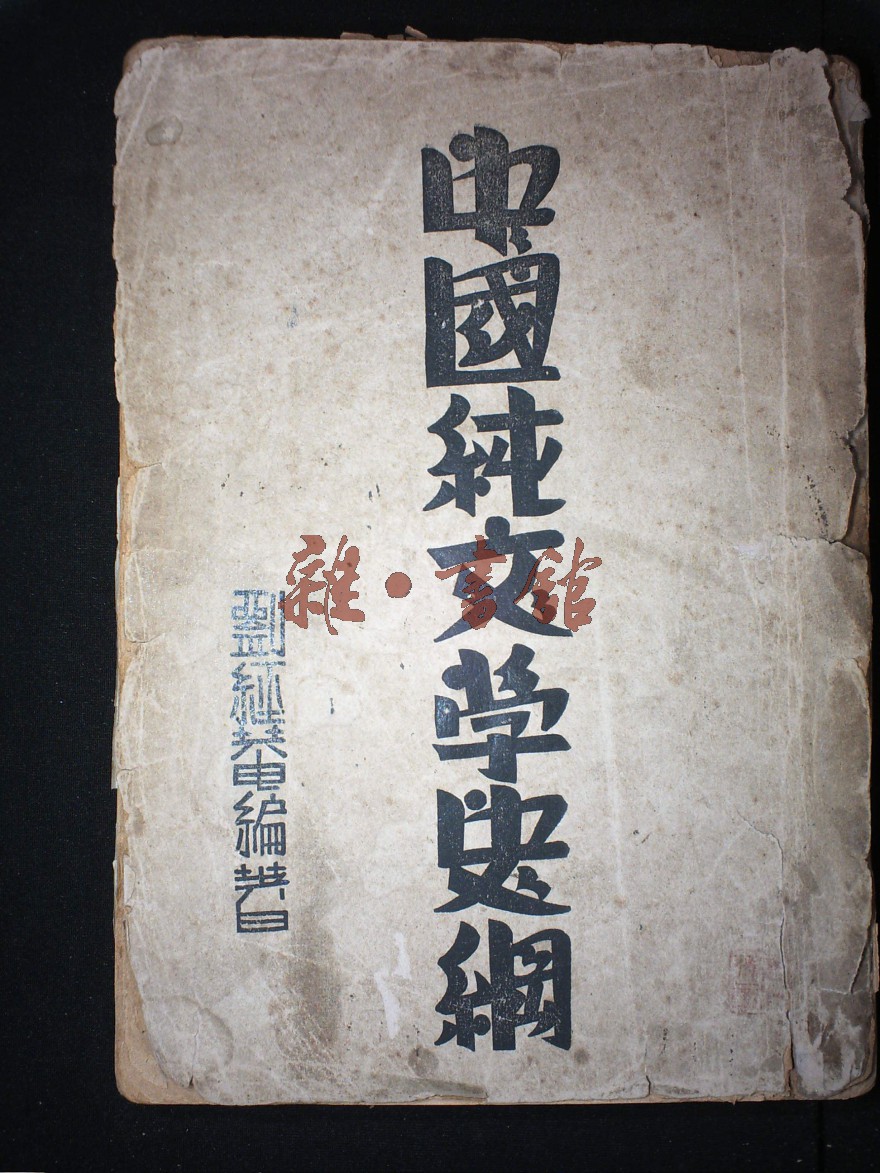 中國純文学史綱
劉經菴編著
雜·書館